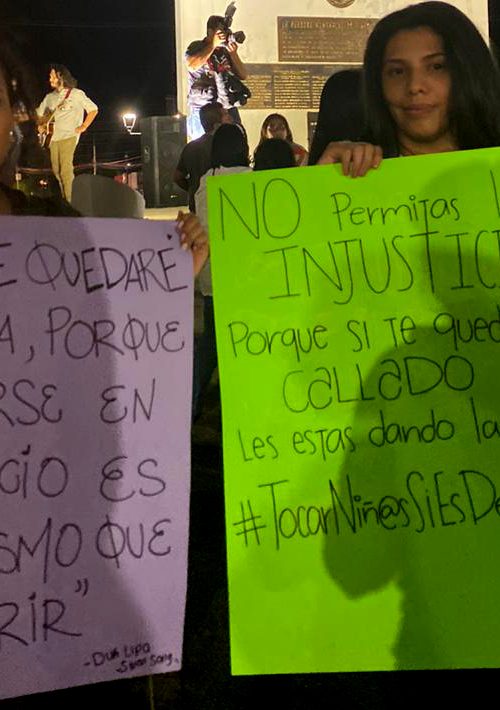 E QUEDARÉ
A, PORQUE
RSE EN
CIO ES
SMO QUE
RIR"
-Dua Lipa
-Swan Song
NO Permitas
INJUSTICI
Porque si te qued
CALLADO
Les estas dando la
#TocarNiñ@sSiEsDe